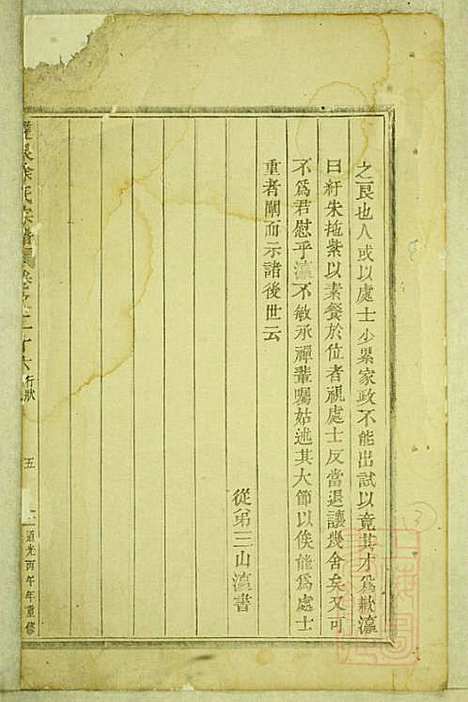 之艮也人或以處士少累家政不能出試以竟其才為歉瀛
曰紆朱拖紫以素餐於位者視處士反當退讓幾舍矣又可
不為君慰乎瀛不敏承禪輩囑姑述其大節以俟能為處士
重者闡而示諸後世云
從弟三山瀛書
徐氏宗譜 卷之二十六 行狀
五
道光丙午年重修